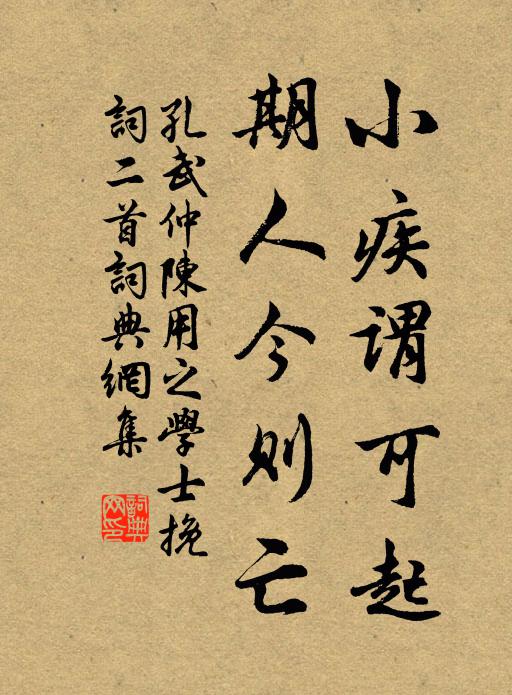 小疾謂可起
期人今則亡
孔武仲陳用之學士挽
詞二首詞典網集
詞典網印